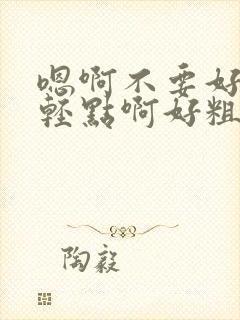 嗯啊不要好
輕點啊好粗
陶毅